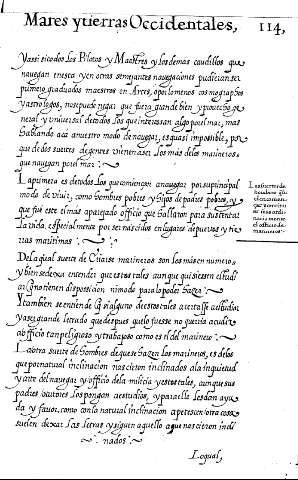 Mares y tierras Occidentales, 114,
Y assi si todos los Pilotos y Maestres y los demás caudillos que
nauegan en esta y en otras semejantes nauegaciones pudiessen ser
primero graduados maestros en Artes, o por lo menos cosmographos
y astrologos, no se puede negar que fuera grande bien y prouecho ge-
neral y vniuersal de todos los que interessan algo por el mar, mas
hablando acá a nuestro modo de nauegar, es quasi impossible, por
que de dos suertes de gentes vienen a ser los más de los marineros
que nauegan por el mar
La primera es de todos los que comiençan a nauegar por su principal
modo de viuir, como hombres pobres y hijos de padres pobres, y
que fué este el más aparejado officio que hallaron para sustentar
la vida, especialmente por ser nascidos en lugares de puertos y tie-
rras maritimas
De la qual suerte de gentes marineros son los más en numero,
y bien se dexa entender que estos tales aunque quisiessen estudi
ar no tienen disposicion ni modo para lo poder hazer
Y tambien se entiende que si alguno de estos tales acertasse a estudiar
y a ser grande letrado que después que lo fuesse no querria acudir
a officio tan peligroso y trabajoso como es el del marinero
La otra suerte de hombres de que se hazen los marineros, es de los
que por natural inclinacion nascieron inclinados a la inquietud
y arte del nauegar y officio de la milicia y estos tales, aunque sus
padres o tutores los pongan a estudios, y para ello les dan ayu
da y fauor, como con la natural inclinacion apetescen otra cosa
suelen dexar las letras y siguen aquello a que nascieron incli
nados
Lo qual,